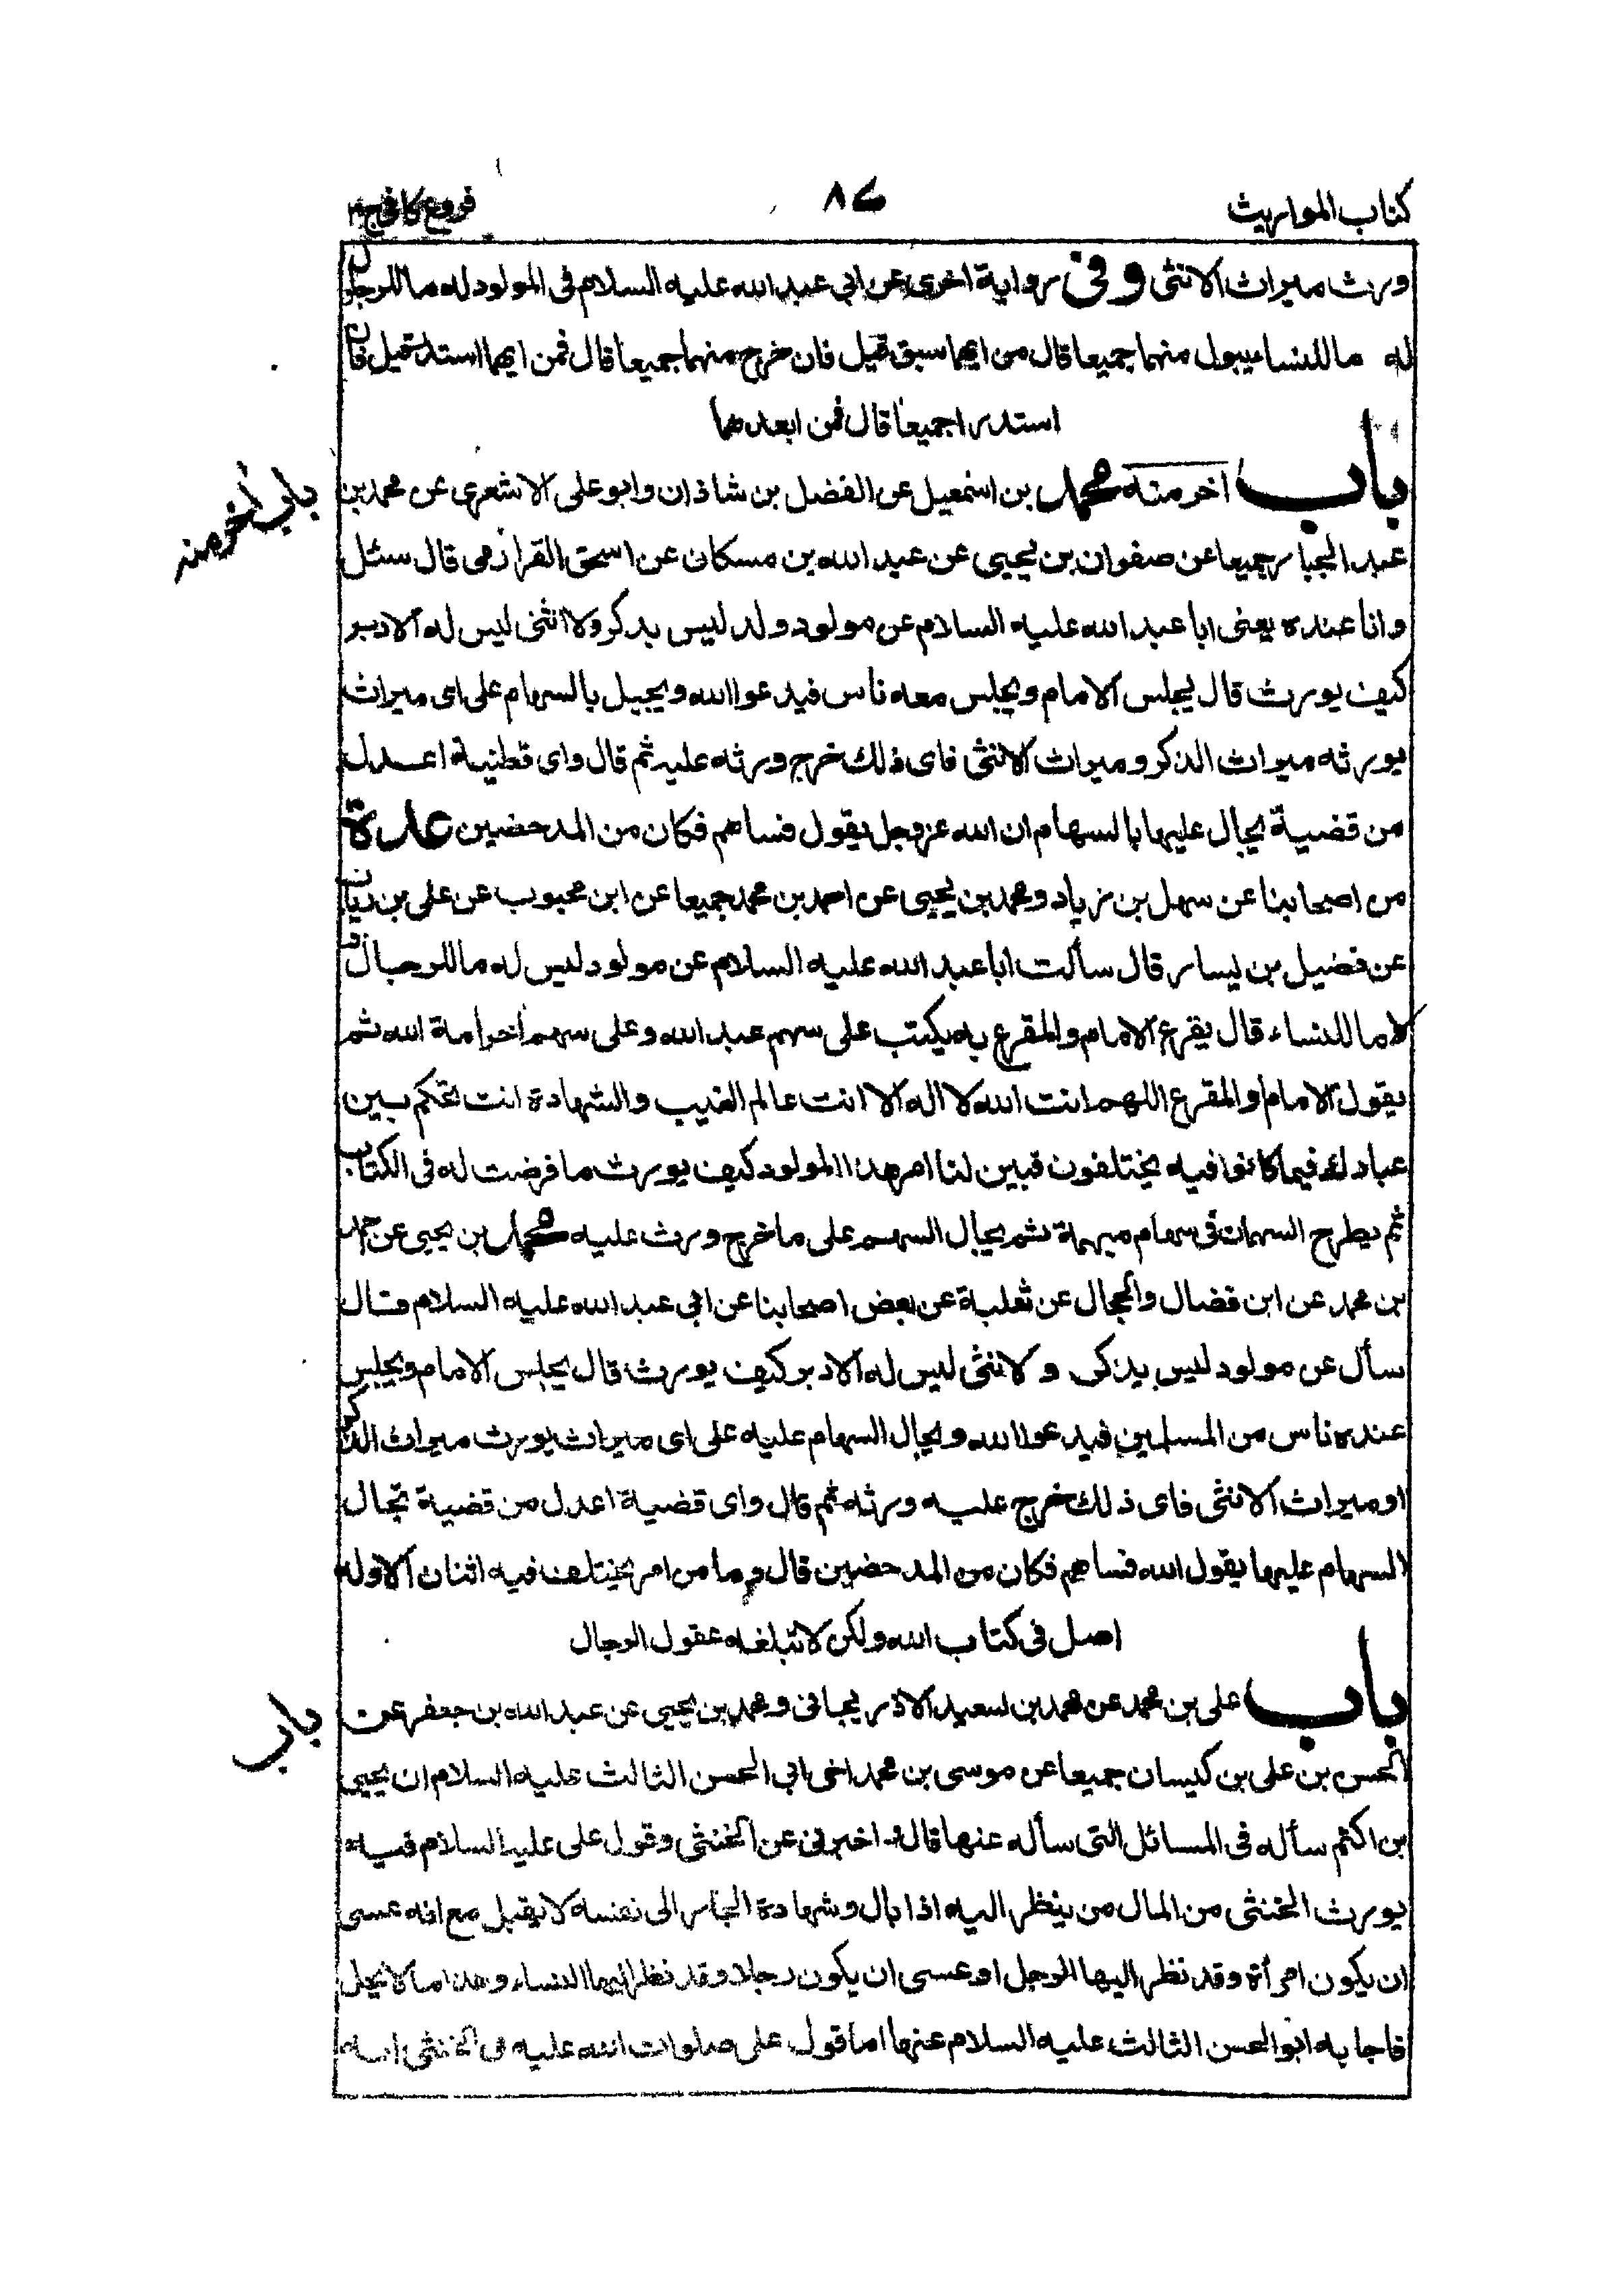 كتاب المواريث
٨٤
فروع كافى ج
ورث ميراث الانثى وفى رواية اخرى عن ابى عبد الله عليه السلام فى المولود له ما للرجل
له ما للنساء يبول منهما جميعا قال من ايهما سبق قيل فان خرج منهما جميعا قال فمن ايهما استدر قيل فان
استدرا جميعا قال فمن ابعدهما
باب اخر منه محمد بن اسمعيل عن الفضل بن شاذان وابو على الاشعرى عن محمد بن
باب اخر منه
عبد الجبار جميعا عن صفوان بن يحيى عن عبد الله بن مسكان عن اسحق الفزارى قال سئل
وانا عنده يعنى ابا عبد الله عليه السلام عن مولود ولد ليس بذكر ولا انثى ليس له الا دبر
كيف يورث قال يجلس الامام ويجلس معه ناس فيدعوا الله ويجيل بالسهام على اى ميراث
يورثه ميراث الذكر وميراث الانثى فاى ذلك خرج ورثه عليه ثم قال واى قضية اعدل
من قضية يجال عليها بالسهام ان الله عز وجل يقول فساهم فكان من المدحضين عدة
من اصحابنا عن سهل بن زياد ومحمد بن يحيى عن احمد بن محمد جميعا عن ابن محبوب عن على بن
عن فضيل بن يسار قال سألت ابا عبد الله عليه السلام عن مولود ليس له ما للرجال و
لا ما للنساء قال يقرع الامام والمقرع به يكتب على سهم عبد الله وعلى سهم اخر امة الله ثم
يقول الامام او المقرع اللهم انت الله لا اله الا انت عالم الغيب والشهادة انت تحكم بين
عبادك فيما كانوا فيه يختلفون فبين لنا امر هذا المولود كيف يورث ما فرضت له فى الكتاب
ثم يطرح السهمان فى سهام مبهمة ثم يجال السهم على ما خرج ورث عليه محمد بن يحيى عن احمد
بن محمد عن ابن فضال والحجال عن ثعلبة عن بعض اصحابنا عن ابى عبد الله عليه السلام قال
سأل عن مولود ليس بذكر ولا انثى ليس له الا دبر كيف يورث قال يجلس الامام ويجلس
عنده ناس من المسلمين فيدعوا الله ويجال السهام عليه على اى ميراث يورث ميراث الذكر
او ميراث الانثى فاى ذلك خرج عليه ورثه ثم قال واى قضية اعدل من قضية تجال
السهام عليها يقول الله فساهم فكان من المدحضين قال وما من امر يختلف فيه اثنان الا وله
اصل فى كتاب الله ولكن لا تبلغه عقول الرجال
باب على بن محمد عن محمد بن سعيد الاذربيجانى ومحمد بن يحيى عن عبد الله بن جعفر عن
باب
الحسن بن على بن كيسان جميعا عن موسى بن محمد اخى ابى الحسن الثالث عليه السلام ان يحيى
بن اكثم سأله فى المسائل التى سأله عنها قال و اخبرنى عن الخنثى وقول على عليه السلام فيه
يورث الخنثى من المال من ينظر اليه اذا بال وشهادة الجار الى نفسه لا يقبل مع انه عسى
ان يكون امرأة وقد نظر اليها الرجل او عسى ان يكون رجلا وقد نظر اليها النساء وهذا ما لا يحل
فاجابه ابو الحسن الثالث عليه السلام عنها اما قول على صلوات الله عليه فى الخنثى انه